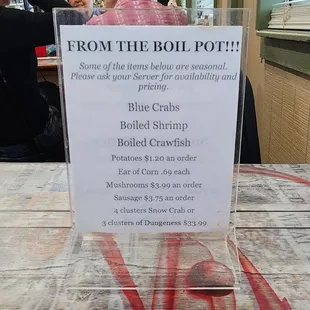 FROM THE BOIL POT!!!
Some of the items below are seasonal.
Please ask your Server for availability and
pricing.
Blue Crabs
Boiled Shrimp
Boiled Crawfish
Potatoes $1.20 an order
Ear of Corn .69 each
Mushrooms $3.99 an order
Sausage $3.75 an order
4 clusters Snow Crab or
3 clusters of Dungeness $33.99